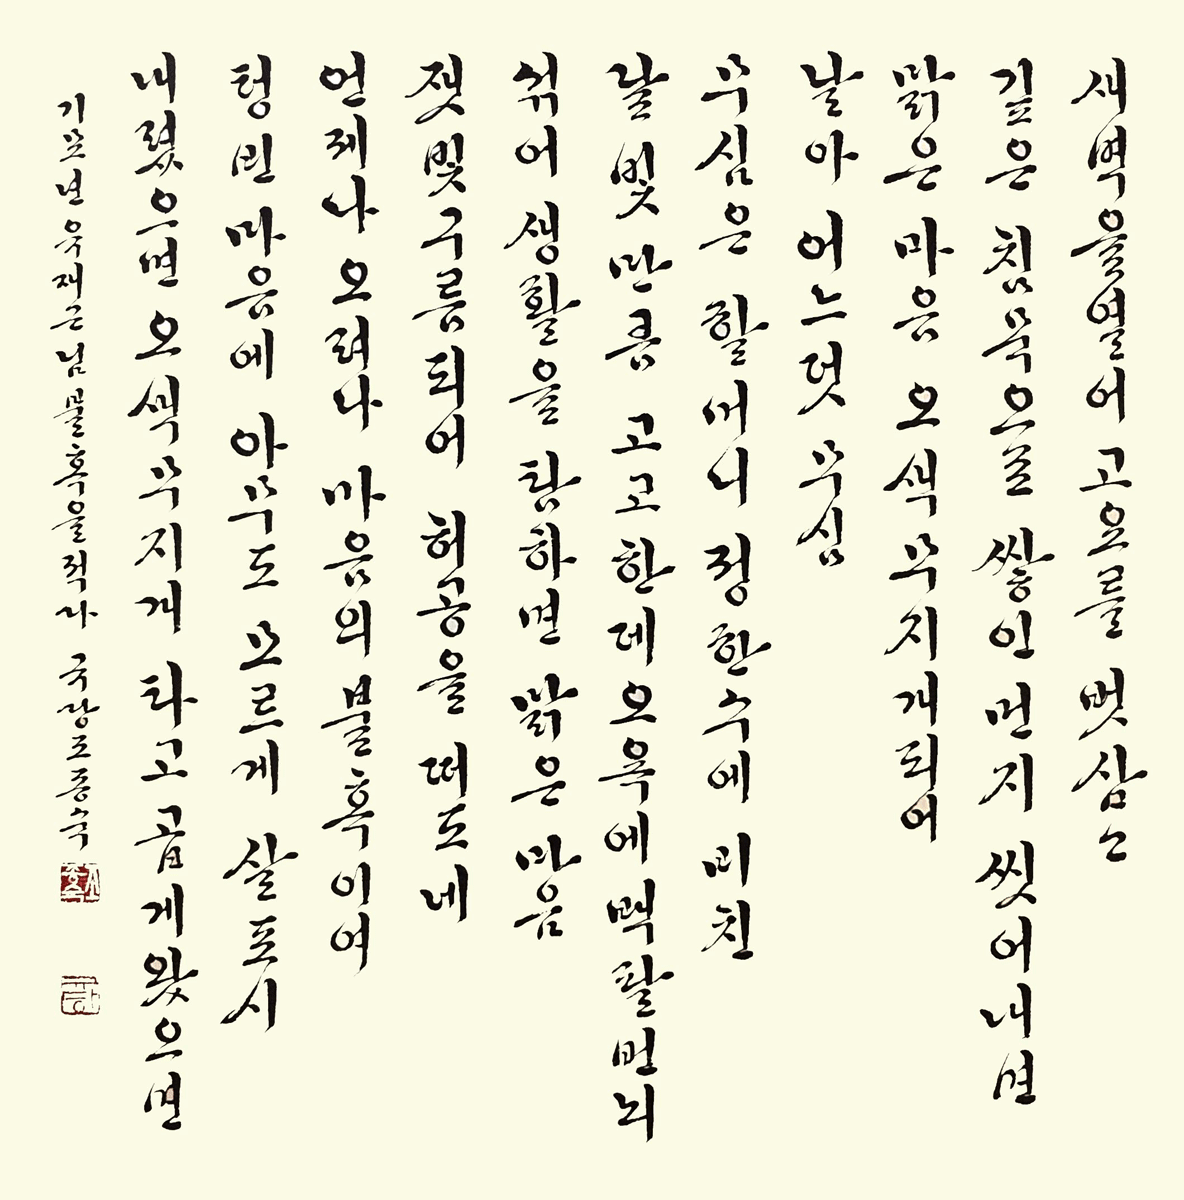 새벽을열어 고요를 벗삼고
깊은 침묵으로 쌓인 먼지 씻어내면
맑은 마음 오색 무지개되어
날아 어느덧 무심
무심은 할머니 정한수에 비친
달빛 만큼 고고한데 오욕에 백팔번뇌
섞어 생활을 탐하면 맑은 마음
잿빛구름되어 허공을 떠도네
언제나 오려나 마음의 불혹이여
텅빈 마음에 아무도 모르게 살포시
내렸으면 오색무지게 타고 곱게왔으면
기묘년 육재근님 불혹을적다 국당조종숙